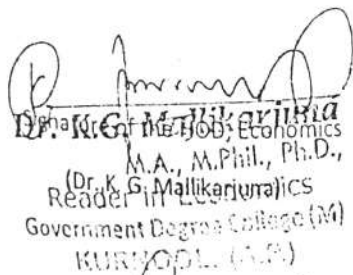 Dr. K.G. Mallikarjuna
Signature of the HOD, Economics
M.A., M.Phil., Ph.D.,
(Dr. K G. Mallikarjuna)
Reader in Economics
Government Degree College (M)
KURNOOL. (A.P.)